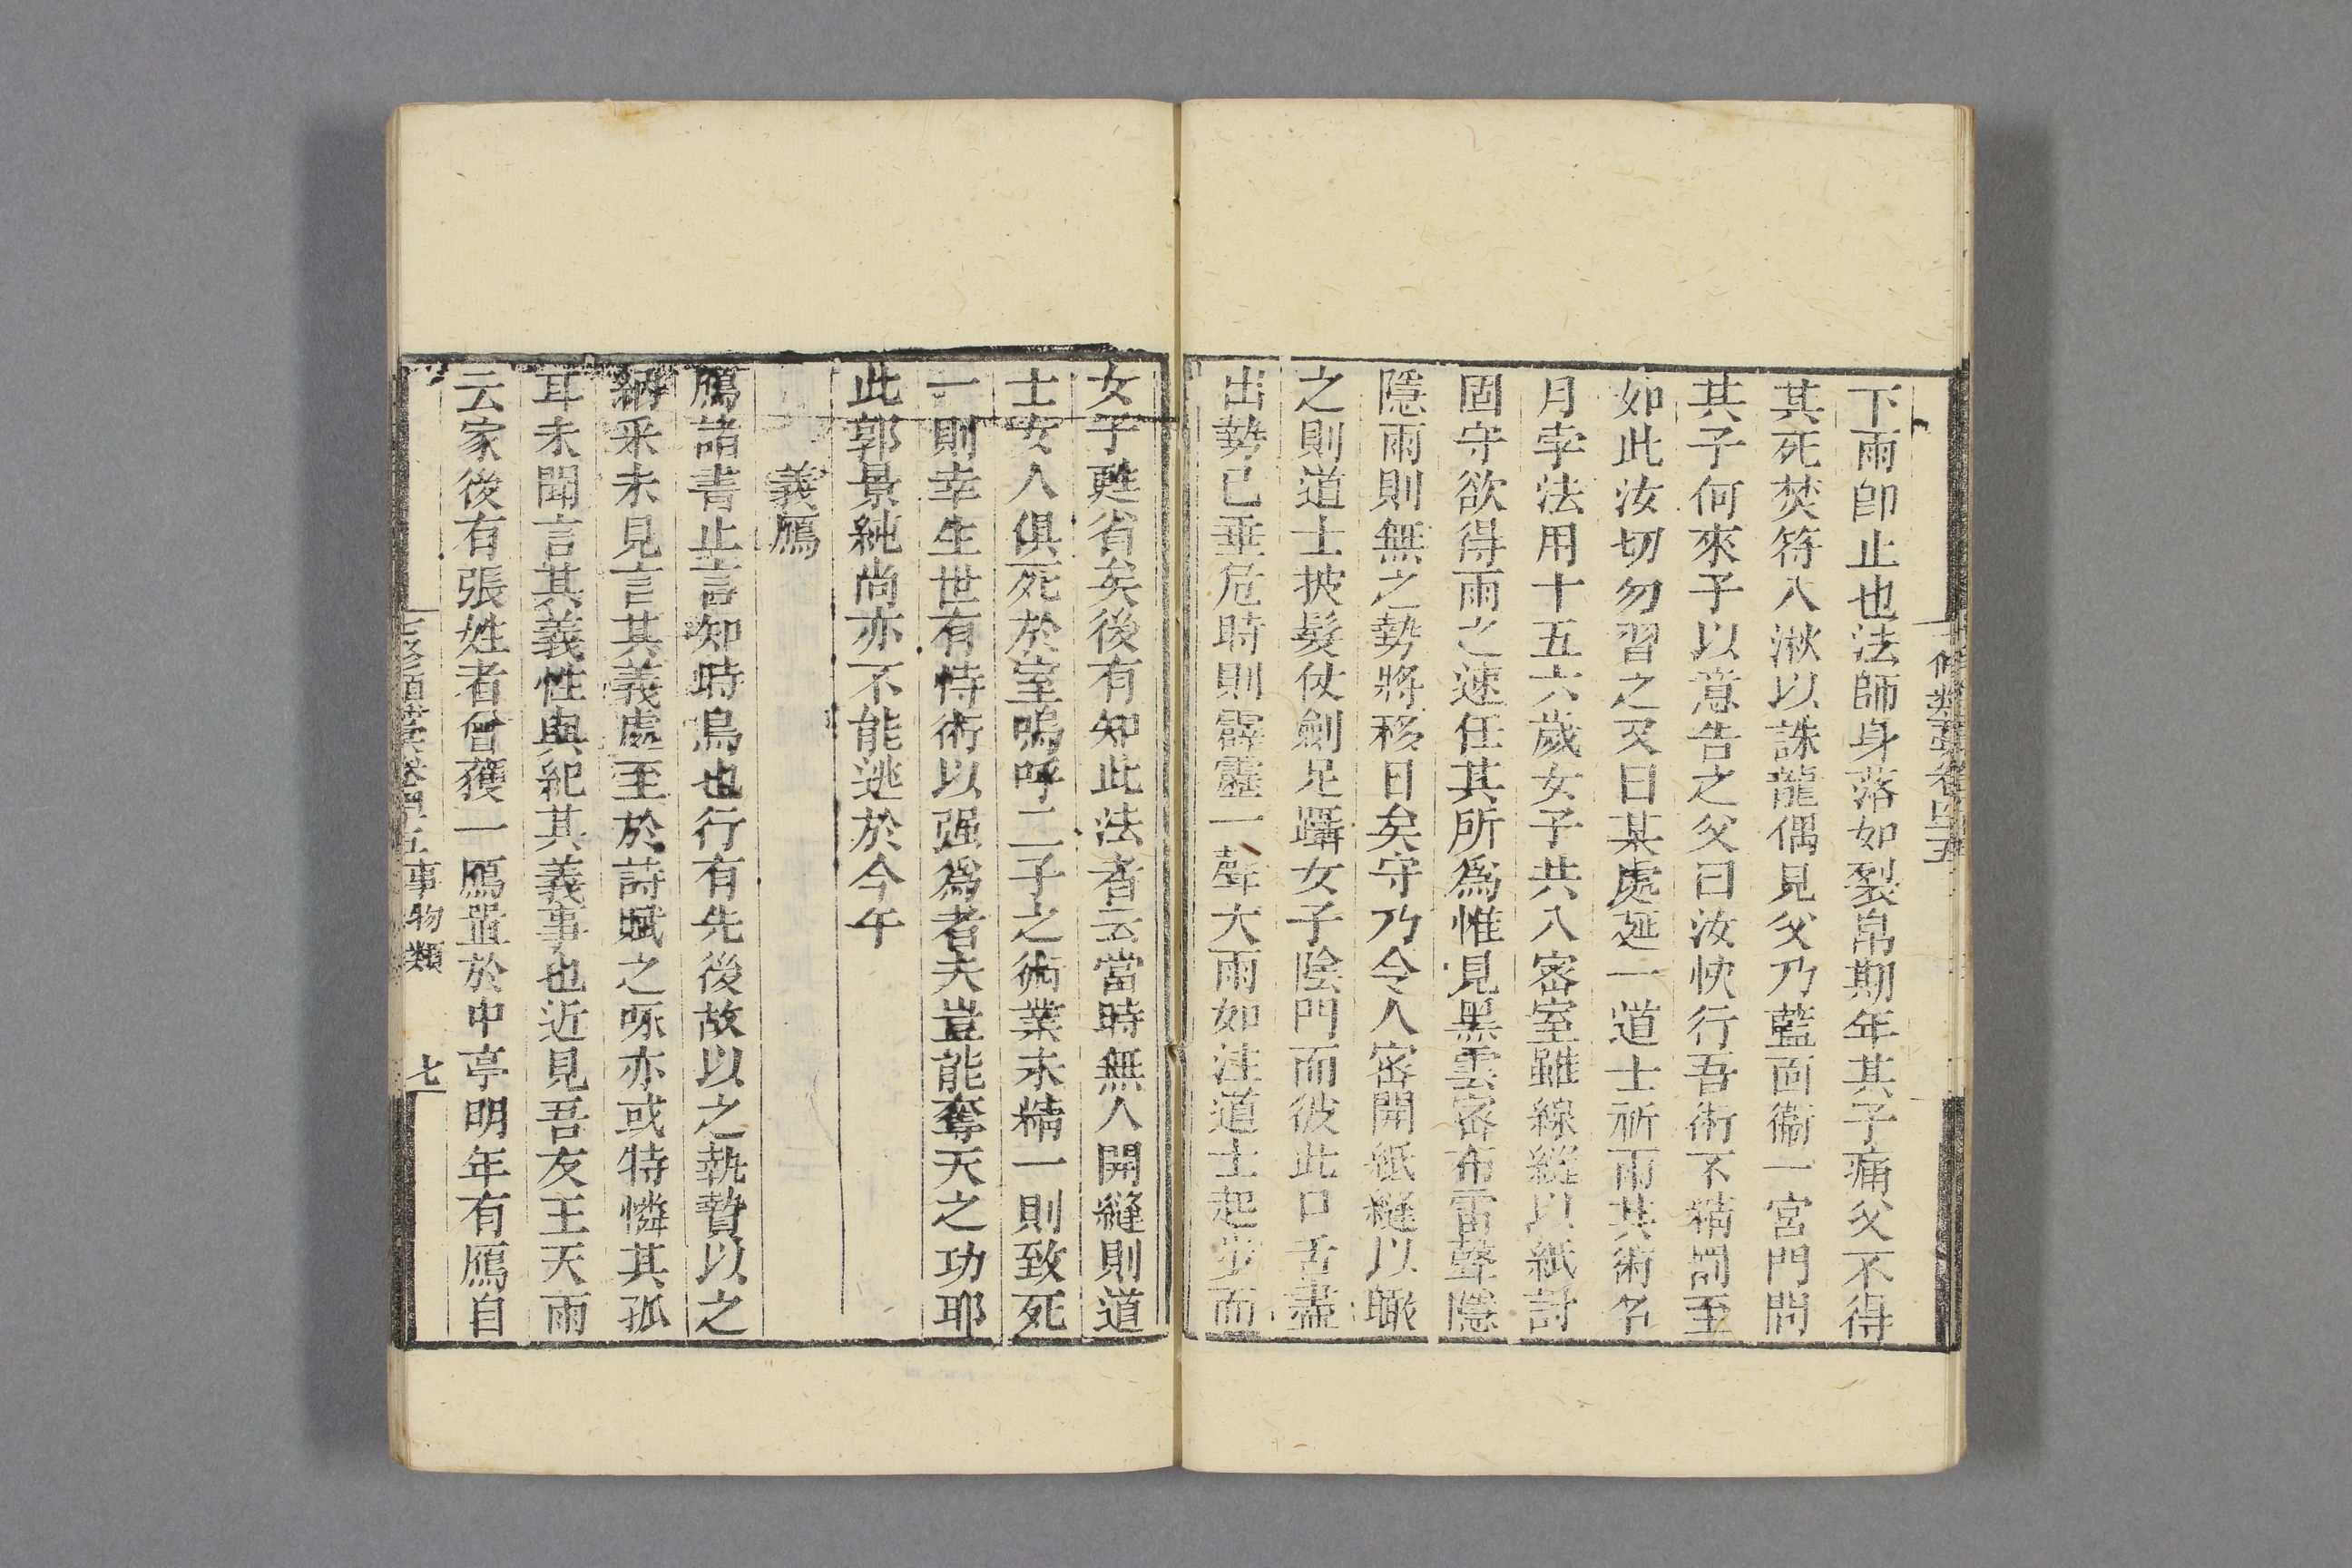 下雨卽止也法師身落如裂帛期年其子痛父不得
其死焚符入湫以誅龍偶見父乃藍面衞一宮門問
其子何來予以意告之父曰汝快行吾術不精罰至
如此汝切勿習之又曰某處延一道士祈雨其術名
月孛法用十五六歲女子共入密室雖線縫以紙封
固守欲得雨之速任其所爲惟見黑雲密布雷聲隱
隱雨則無之勢將移日矣守乃令人密開紙縫以瞰
之則道士披髮仗劍足躡女子陰門而彼此口舌盡
出勢已垂危時則霹靂一聲大雨如注道士起步而
女子甦省矣後有知此法者云當時無人開縫則道
士女人俱死於室嗚呼二子之術業未精一則致死
一則幸生世有恃術以强爲者夫豈能奪天之功耶
此郭景純尚亦不能逃於今午
義鴈
鴈諸書止言知時鳥也行有先後故以之執贄以之
納采未見言其義處至於詩賦之啄亦或特憐其孤
耳未聞言其義性與紀其義事也近見吾友王天雨
云家後有張姓者曾獲一鴈置於中亭明年有鴈自
七修類藁卷四十五 事物類 七